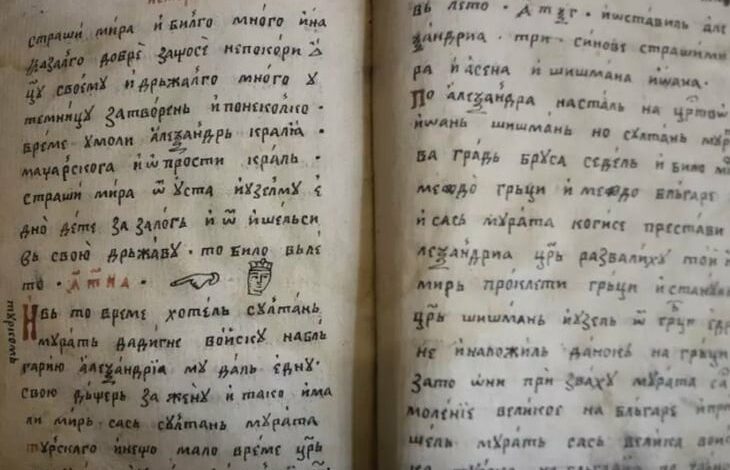 страши мира и било много и на
дазалго добрѐ защосе непокори ѿ
цꙋ своемꙋ и дрьжалго много ꙋ
темницꙋ затворень и понеколико
време ꙋмоли алеѯандрь кралꙗ
маџарскога и ѡпрости краль
страши мира ѿ ꙋста иꙋзелмꙋ е
дно дете за залогь и ѿ ишельси
вь свою дрьжавꙋ · то било вьле
то · ҂атна ·
тꙋрском
И вь то време хотель сꙋлтань
мꙋрать дадигне войскꙋ набль
гарию алеѯандріа мꙋ даль еднꙋ
свою дьщерь за женꙋ и тако има
ли мирь сась сꙋлтань мꙋрата
тꙋрскаго инещо мало време црь
вь лето · атѯг · иѡставиль але
ѯандриа · три · синове страшими
ра и асена и шишмана иѡана ·
По алеѯандра насталь на цртво
иѡань шишмань но сꙋлтань мꙋр
ва градь брꙋса седель и било м
междо гръци и междо бльгаре
и сась мꙋрата когисе престави
леѯандриа црь развалихꙋ той
мирь проклети гръци и станꙋли
црь шишмань иꙋзель ѿ грци едр
не и наложиль данокь на гръци
зато ѡни при звахꙋ мꙋрата са
моленіе великое на бльгаре и пр
шель мꙋрать сась велика вои